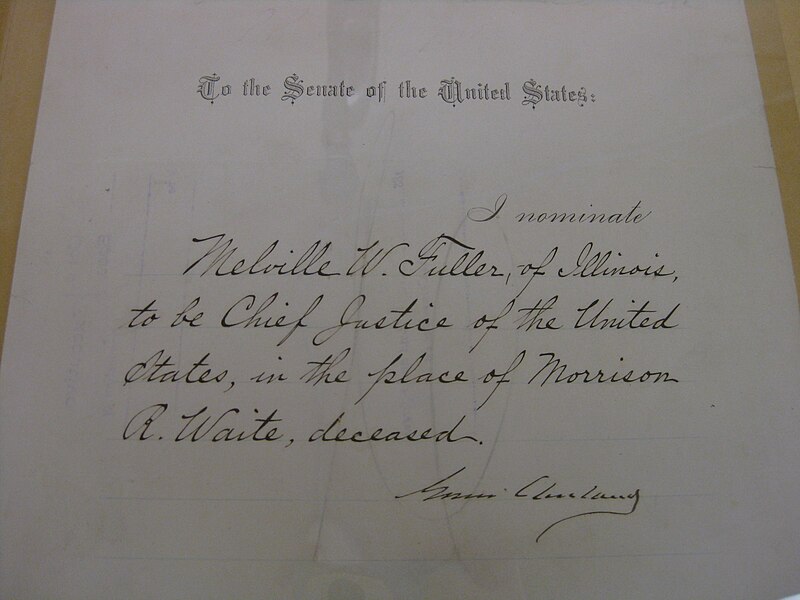 To the Senate of the United States:
I nominate
Melville W. Fuller, of Illinois,
to be Chief Justice of the United
States, in the place of Morrison
R. Waite, deceased.
Grover Cleveland